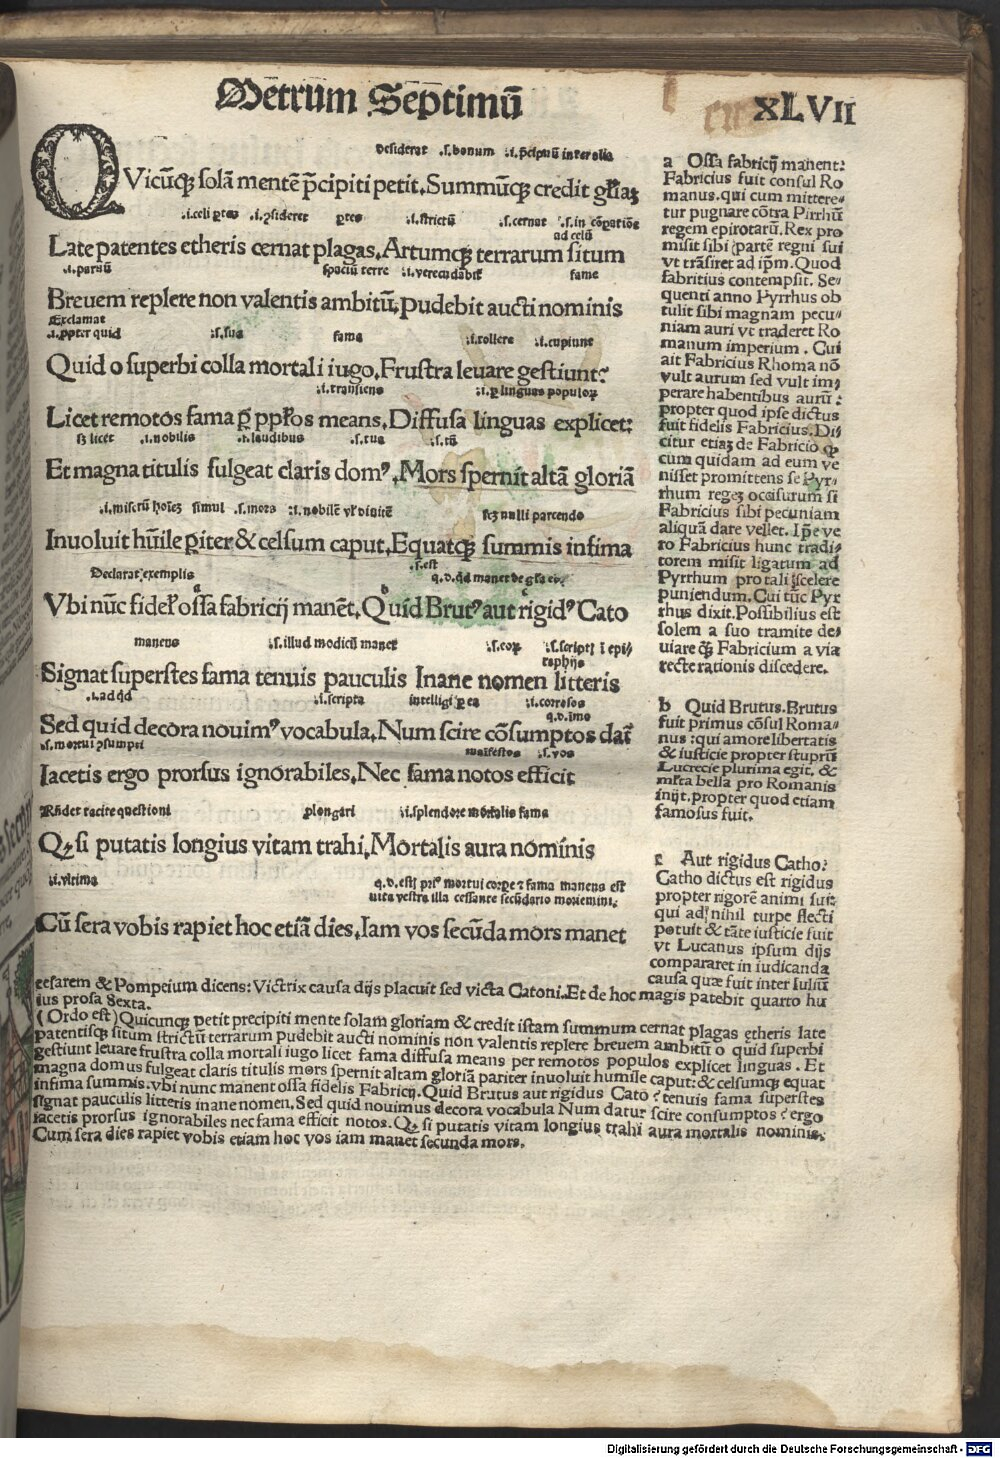 Metrum Septimū
XLVII
desiderat .s.bonum .i.p̄cipuū inter alia
QVicūqꝫ solā mentē p̄cipiti petit. Summūqꝫ credit gl̄iaꝫ
.i.celi ꝑtes .i.ꝯsideret ꝑtes .i.strictū .s.cernat .s.in cōꝑatiōe
ad celū
Late patentes etheris cernat plagas. Artumqꝫ terrarum situm
.i.paruū spaciū terre .i.verecūdabit̄ fame
Breuem replere non valentis ambitū. Pudebit aucti nominis
Exclamat
.i.ꝓpter quid .s.sua fama .i.tollere .i.cupiunt
Quid o superbi colla mortali iugo. Frustra leuare gestiunt?
.i.transiens .i.ꝑ linguas populoꝝ
Licet remotos fama ꝑ pp̄los means. Diffusa linguas explicet:
.s̄ licet .i.nobilis .i.laudibus .s.tua .s.tn̄
Et magna titulis fulgeat claris domꝰ. Mors spernit altā gloriā
.i.miserū hoīeꝫ simul .s.mors .i.nobilē vl̄ diuitē nulli parcendo
Inuoluit hūile ꝑiter & celsum caput. Equatqꝫ summis infima
Declarat exemplis .s.est
a b q.d.qd̄ manet de gl̄ia eiꝰ. c
Vbi nūc fidel̄ ossa fabricij manēt. Quid Brutꝰ aut rigidꝰ Cato
manens .s.illud modicū manet .s.eoꝝ .s.scriptꝭ ī epi/
taphijs
Signat superstes fama tenuis pauculis Inane nomen litteris
.i.ad qd̄ .i.scripta intelligi ꝑ ea .i.corrosos
q.d.imo
Sed quid decora nouimꝰ vocabula. Num scire cōsumptos dat̄
.s.mortui ꝯsumpti manifestos .s.vos
Iacetis ergo prorsus ignorabiles. Nec fama notos efficit
Rn̄det tacite questioni plongari .i.splendore mortalis fama
Qꝫ si putatis longius vitam trahi. Mortalis aura nominis
.i.vltima q.d.estꝭ priꝰ mortui corꝑe ⁊ fama manens est
uita vestra illa cessante secūdario moriemini.
Cū sera vobis rapiet hoc etiā dies. Iam vos secūda mors manet
a Ossa fabricij manent:
Fabricius fuit consul Ro
manus. qui cum mittere-
tur pugnare cōtra Pirrhū
regem epirotarū. Rex pro
misit sibi partē regni sui
vt trāsiret ad ip̄m. Quod
fabritius contempsit. Se-
quenti anno Pyrrhus ob
tulit sibi magnam pecu/
niam auri vt traderet Ro
manum imperium. Cui
ait Fabricius Rhoma nō
vult aurum sed vult im/
perare habentibus aurū:
propter quod ipse dictus
fuit fidelis Fabricius. Di/
citur etiaꝫ de Fabricio qꝫ
cum quidam ad eum ve
nisset promittens se Pyr-
rhum regeꝫ occisurum si
Fabricius sibi pecuniam
aliquā dare vellet. Ip̄e ve
ro Fabricius hunc tradi/
torem misit ligatum ad
Pyrrhum pro tali scelere
puniendum. Cui tūc Pyr
rhus dixit. Possibilius est
solem a suo tramite de/
uiare qꝫ Fabricium a via
recte rationis discedere.
b Quid Brutus. Brutus
fuit primus cōsul Roma-
nus: qui amore libertatis
& iusticie propter stuprū
Lucrecie plurima egit. &
ml̄ta bella pro Romanis
inijt. propter quod etiam
famosus fuit.
c Aut rigidus Catho?
Catho dictus est rigidus
propter rigorē animi sui:
qui ad nihil turpe flecti
potuit & tāte iusticie fuit
vt Lucanus ipsum dijs
compararet in iudicanda
causa quæ fuit inter Iuliū
cesarem & Pompeium dicens: Victrix causa dijs placuit sed victa Catoni. Et de hoc magis patebit quarto hu
ius prosa Sexta.
(Ordo est) Quicunqꝫ petit precipiti mente solam gloriam & credit istam summum cernat plagas etheris late
patentisqꝫ situm strictū terrarum pudebit aucti nominis non valentis replere breuem ambitū o quid superbi
gestiunt leuare frustra colla mortali iugo licet fama diffusa means per remotos populos explicet linguas. Et
magna domus fulgeat claris titulis mors spernit altam gloriā pariter inuoluit humile caput: & celsumqꝫ equat
infima summis. vbi nunc manent ossa fidelis Fabricij. Quid Brutus aut rigidus Cato? tenuis fama superstes
signat pauculis litteris inane nomen. Sed quid nouimus decora vocabula Num datur scire consumptos? ergo
iacetis prorsus ignorabiles nec fama efficit notos. Qꝫ si putatis vitam longius trahi aura mortalis nominis.
Cum sera dies rapiet vobis etiam hoc vos iam manet secunda mors.
Digitalisierung gefördert durch die Deutsche Forschungsgemeinschaft - DFG